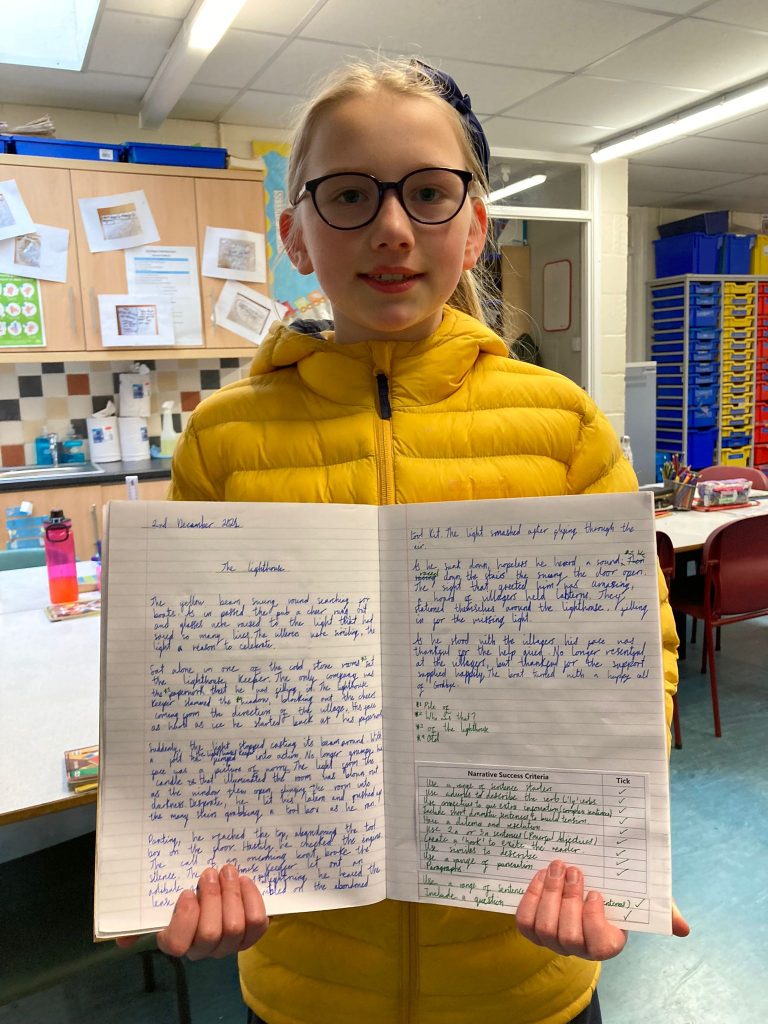 2nd December 2021
The lighthouse
The yellow beam swung round searching for
boats. As it passed the pub a cheer rang out
and glasses were raised to the light that had
saved so many lives. The villages were smiling, the
light a reason to celebrate.
Sat alone in one of the cold stone rooms sat
the lighthouse keeper. The only company was
the paperwork that he was filling in. The lighthouse
keeper slammed the window, blocking out the cheers
coming from the direction of the village. His face
as hard as ice he started back at his paperwork
Suddenly, the light stopped casting its beam around. With
a jolt he jumped into action. No longer grumpy, his
face was a picture of worry. The light from the
candle that illuminated the room was blown out
as the window flew open, flinging the room into
darkness. Desperate, he lit his latern and rushed up
the many stairs grabbing a tool box as he ran
Panting, he reached the top, abandoning the tool
box on the floor. Hastily, he checked the
The call of an oncoming boat broke the
silence. The keeper let out an
lightning, he heaved the
on the abandoned
tool kit. The light smashed after flying through the
air.
As he sunk down, hopeless he heard a sound. Then he
raced down the stairs the swung the door open.
The sight that greeted him was amazing,
a hoard of villagers held latterns. They
stationed themselves around the lighthouse, filling
in for the missing light.
As he stood with the villagers his face was
thankful for the help gived. No longer resentful
at the villagers, but thankful for the support
supplied happily. The boat turned with a hoping call
of Goodbye.
*1 Pile of
*2 Who is that?
*3 of the lighthouse
*4 Old
Narrative Success Criteria Tick
Use a range of sentence starters ✓
Use adverbs to describe the verb (ly) verbs ✓
Use connectives to give extra information (complex sentences) ✓
Include short dramatic sentences to build tension ✓
Have a dilema and resolution ✓
Use 2a or 3a sentences (Powerful adjectives) ✓
Create a 'hook' to excite the reader ✓
Use similes to describe ✓
Use a range of punctuation ✓
Paragraphs ✓
Use a range of sentence ✓
Include a question ✓